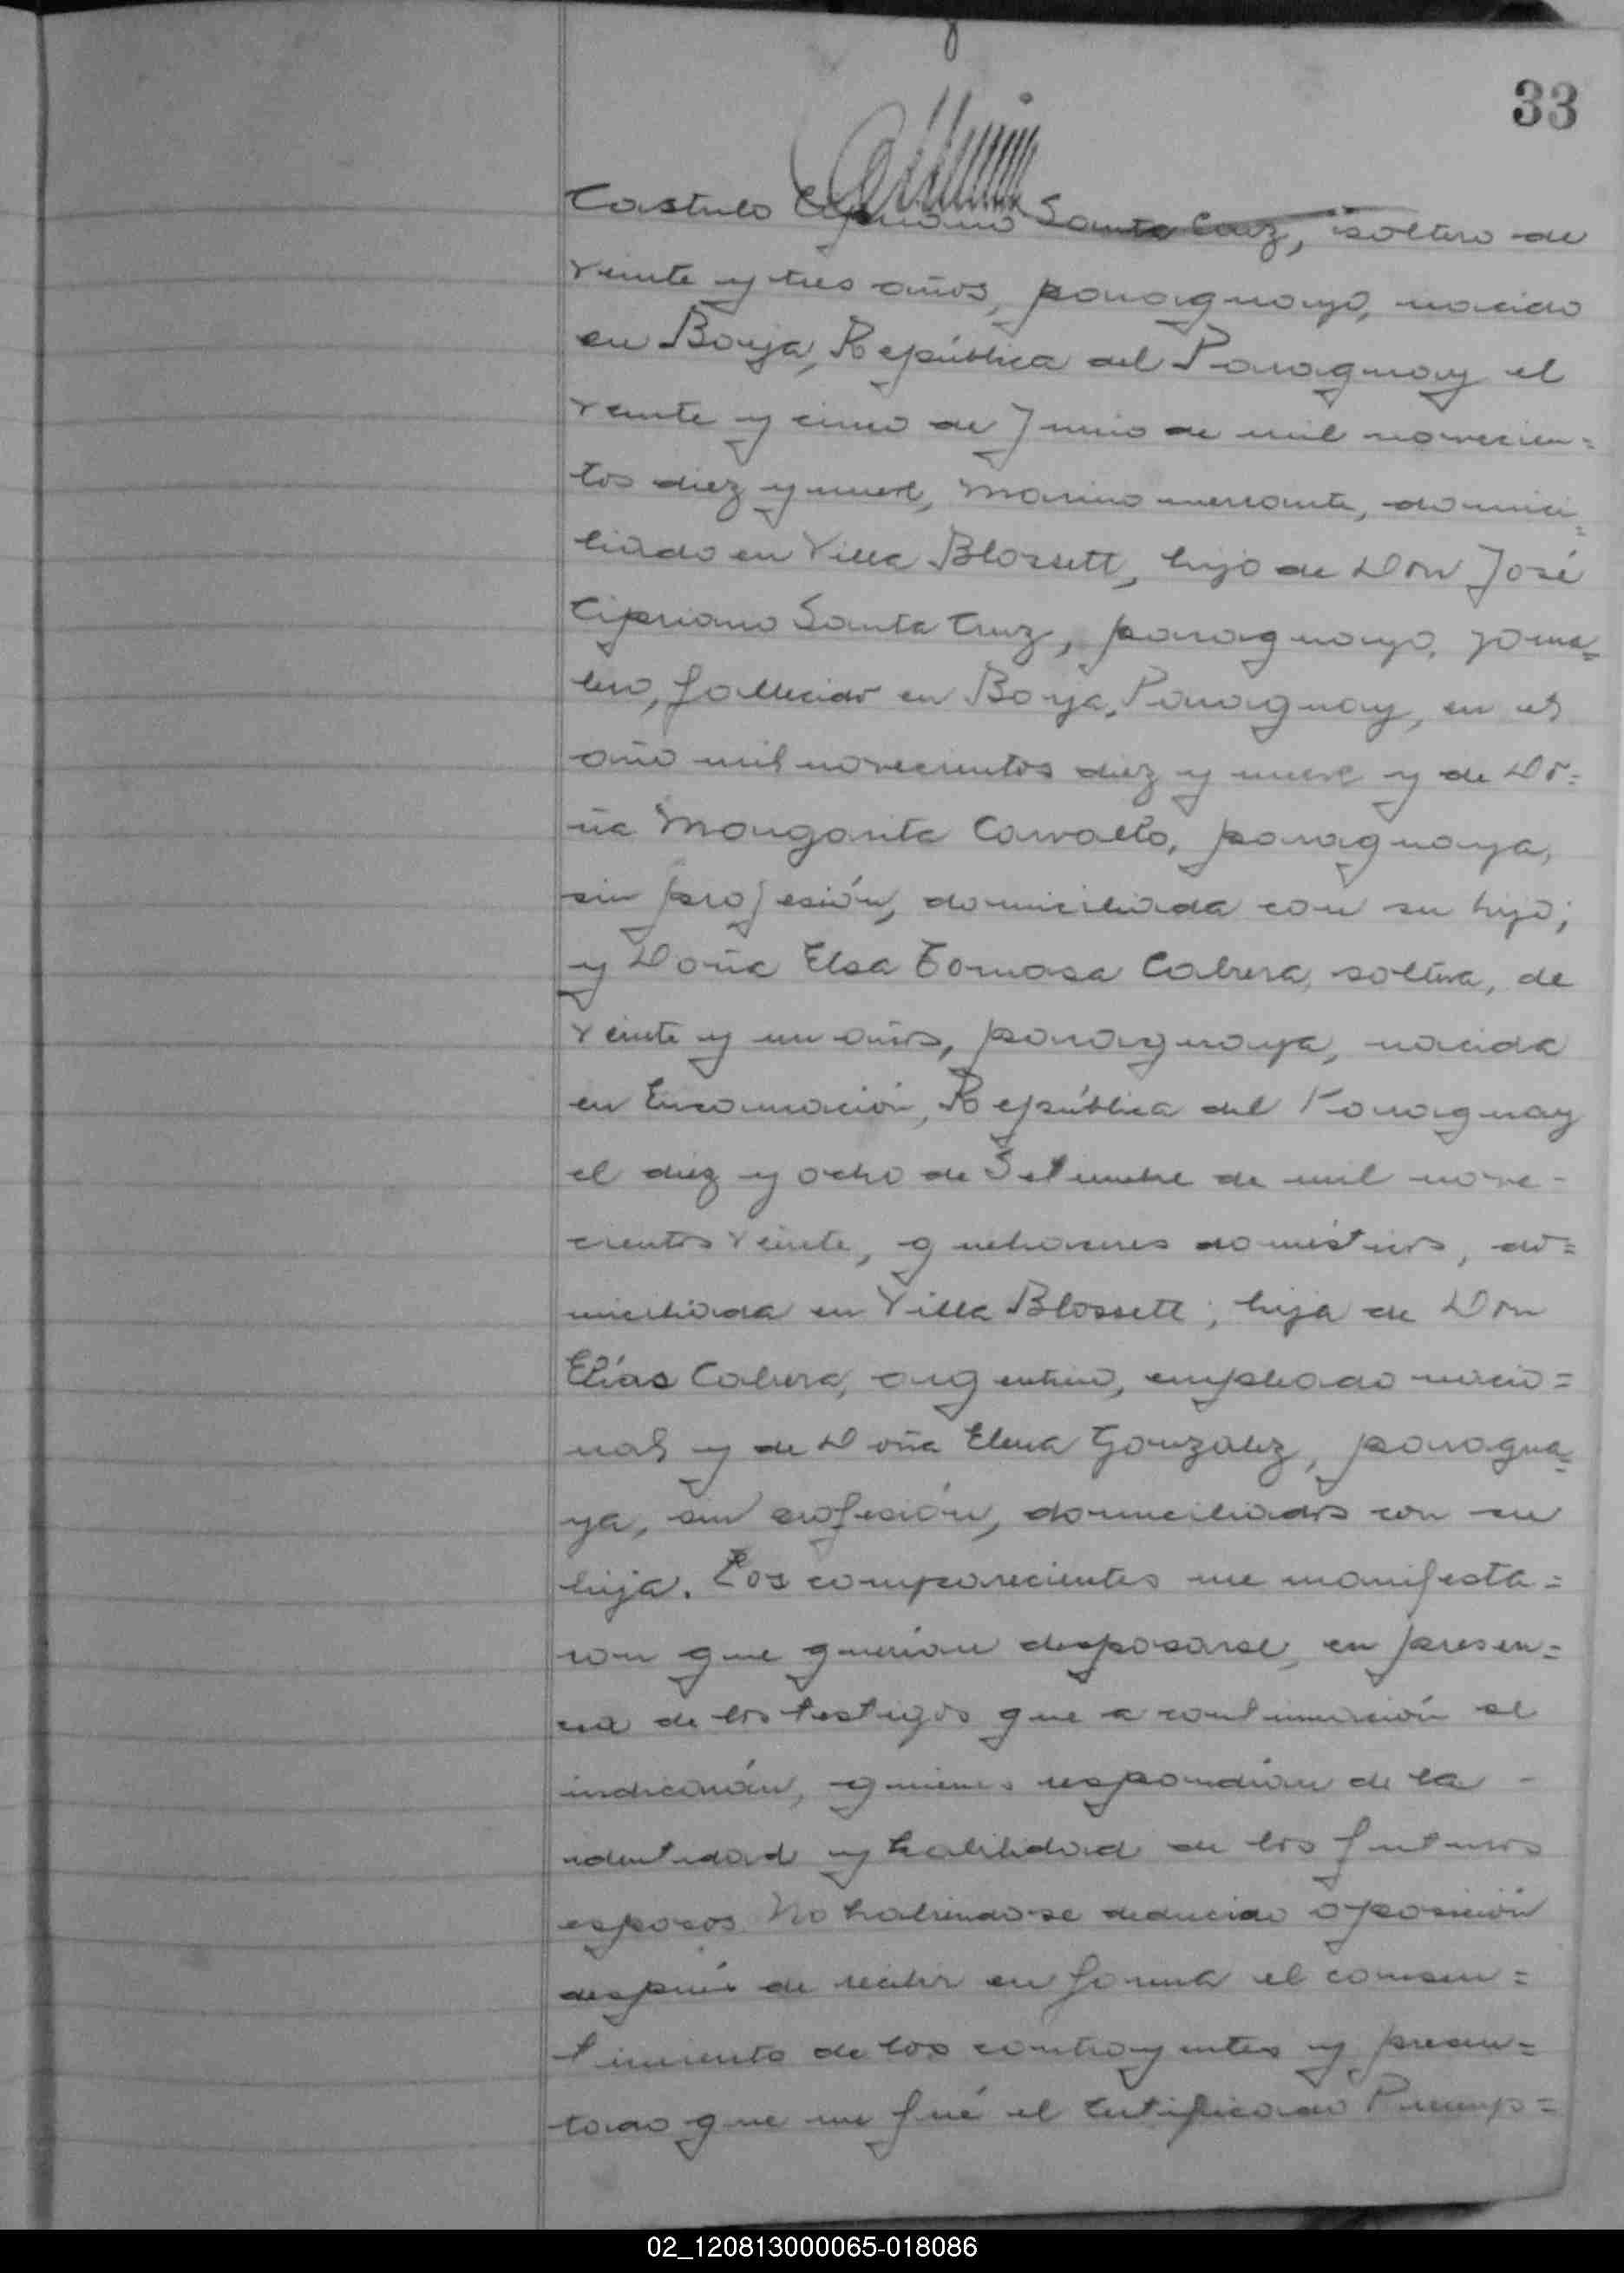 33
Castulo Cipriano Santa Cruz, soltero de
veinte y tres años, paraguayo, nacido
en Borja, República del Paraguay el
veinte y cinco de Junio de mil novecien=
tos diez y nueve, marino mercante, domici=
liado en Villa Blossett, hijo de Don José
Cipriano Santa Cruz, paraguayo, jorna=
lero, fallecido en Borja, Paraguay, en el
año mil novecientos diez y nueve y de Do=
ña Margarita Carvallo, paraguaya,
sin profesión, domiciliada con su hijo;
y Doña Elsa Tomasa Cabrera, soltera, de
veinte y un años, paraguaya, nacida
en Encarnación, República del Paraguay
el diez y ocho de Setiembre de mil nove-
cientos veinte, quehaceres domésticos, do=
miciliada en Villa Blossett; hija de Don
Elías Cabrera, argentino, empleado nacio=
nal y de Doña Elena Gonzalez, paragua=
ya, sin profesión, domiciliados con su
hija. Los comparecientes me manifesta=
ron que querían desposarse, en presen=
cia de los testigos que a continuación se
indicarán, quienes respondían de la -
identidad y habilidad de los futuros
esposos. No habiendose deducido oposición
después de recibir en forma el consen=
timiento de los contrayentes y presen=
tado que me fué el Certificado Prenup=
02_120813000065-018086